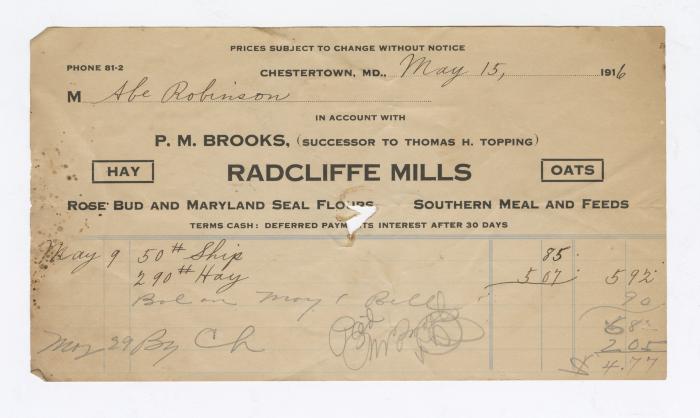 PRICES SUBJECT TO CHANGE WITHOUT NOTICE
PHONE 81-2
CHESTERTOWN, MD., May 15, 1916
M Abe Robinson
IN ACCOUNT WITH
P. M. BROOKS, (SUCCESSOR TO THOMAS H. TOPPING)
HAY RADCLIFFE MILLS OATS
ROSE BUD AND MARYLAND SEAL FLOURS SOUTHERN MEAL AND FEEDS
TERMS CASH: DEFERRED PAYMENTS INTEREST AFTER 30 DAYS
May 9 50# Ship 85
290# Hay 5 07 5 92
Bal on May 1 Bill 90
6 82
May 29 By Ch 2 05
$ 4.77